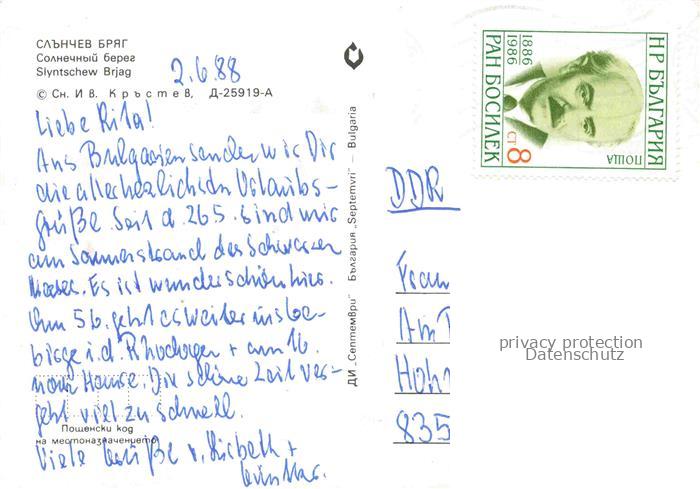 СЛЪНЧЕВ БРЯГ
Солнечный берег
Slyntschew Brjag
© Сн. Ив. Кръстев, Д-25919-А
2.6.88
Liebe Rita!
Aus Bulgarien senden wir Dir
die allerherzlichsten Urlaubs-
grüße. Seit d. 26.5. sind wir
am Sonnenstrand des Schwarzen
Meeres. Es ist wunderschön hier.
Am 5.6. geht es weiter ins Ge-
birge i.d. Rhodopen + am 10.
nach Hause. Die schöne Zeit ver-
geht viel zu schnell.
Пощенски код
на местоназначението
Viele Grüße v. Lisbeth +
Günther.
ДИ „Септември" България „Septemvri" — Bulgaria
НР БЪЛГАРИЯ
ПОЩА
1886
1986
РАН БОСИЛЕК
8 СТ
DDR
Frau
Am
Hohn
835
privacy protection
Datenschutz